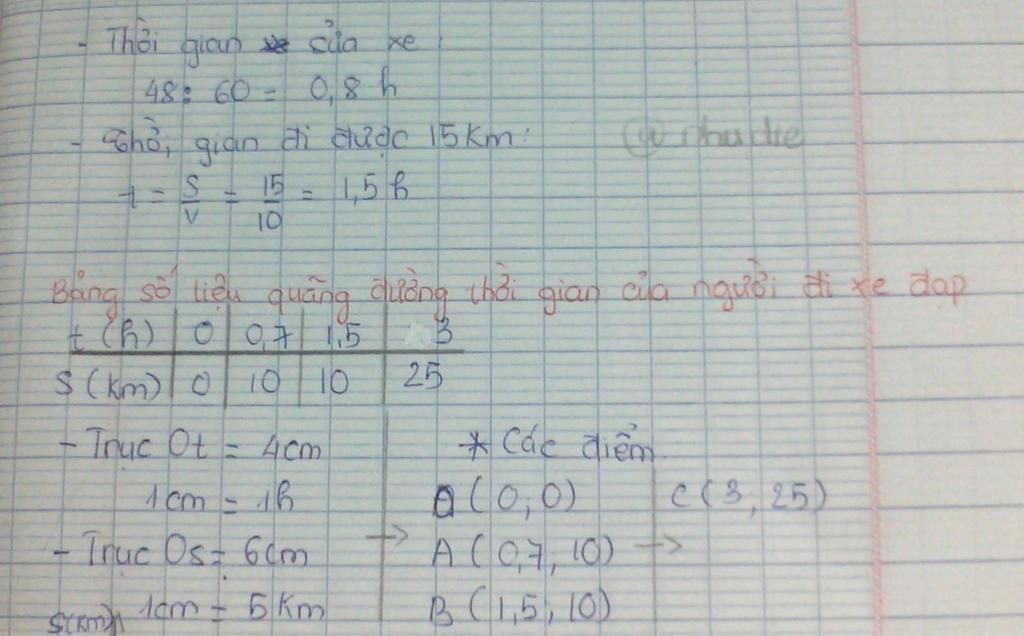 - Thời gian sửa xe:
48: 60 = 0,8 h
- Thời gian đi được 15 km:
t = S/V = 15/10 = 1,5 h
Bảng số liệu quãng đường thời gian của người đi xe đạp
t (h) | 0 | 0,7 | 1,5 | 3
S (km) | 0 | 10 | 10 | 25
- Trục Ot = 4cm
1cm = 1h
- Trục Os = 6cm
1cm = 5 km
S(km)
* Các điểm
O (0; 0)
→ A (0,7; 10) →
B (1,5; 10)
C (3; 25)